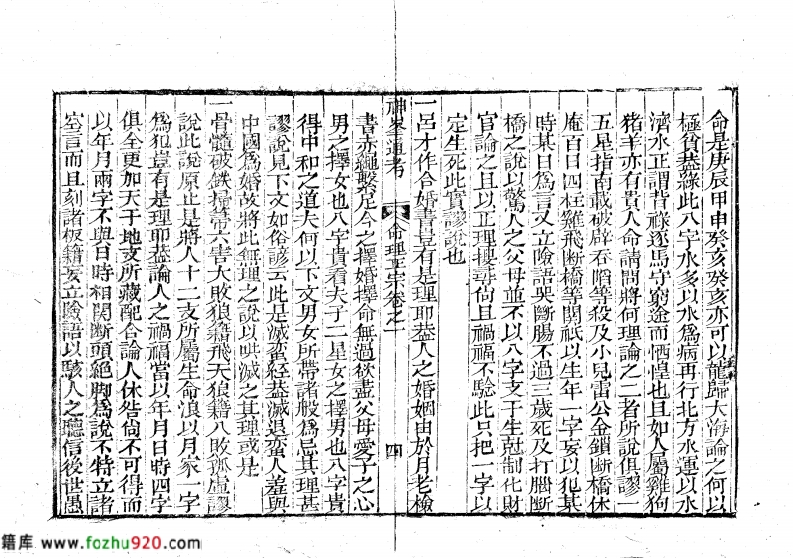 命是庚辰甲申癸亥癸亥亦可以龍歸大海論之何以
極貧葢緣此八字水多以水爲病再行北方水運以水
濟水正謂背祿逐馬守窮途而恓惶也且如人屬雞狗
猪羊亦有貴人命請問將何理論之二者所說俱謬一
五星指南載破辟吞䧟等殺及小兒雷公金鎖斷橋休
庵百日四柱雞飛斷橋等關祇以生年一字妄以犯某
時某日爲言又立險語哭斷腸不過三歲死及打腦斷
橋之說以驚人之父母並不以八字支干生尅制化財
官論之且以正理搜尋尙且禍福不驗此只把一字以
定生死此實謬說也
神峯通考
命理正宗卷之一
四
一呂才作合婚書豈有是理耶葢人之婚姻由於月老檢
書赤繩繫足今之擇婚擇命無過欲盡父母愛子之心
男之擇女也八字貴看夫子二星女之擇男也八字貴
得中和之道夫何以下文男女所帶諸般爲忌其理甚
謬說見下文如俗諺云此是滅蠻經葢滅退蠻人羞與
中國爲婚故將此無理之說以哄滅之其理或是
一骨髓破鉄掃箒六害大敗狼籍飛天狼籍八敗孤虛謬
說此說原止是將人十二支所屬生命浪以月家一字
爲犯豈有是理耶葢論人之禍福當以年月日時四字
俱全更加天干地支所藏配合論人休咎尙不可得而
以年月兩字不與日時相関斷頭絕脚爲說不特立諸
空言而且刻諸板籍妄立險語以駭人之聽信後世愚
籍库 www.fozhu920.com